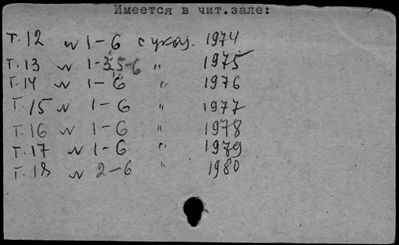 Имеется в чит.зале:
Т.12 N 1-6 с указ. 1974
Т.13 N 1-3,5-6 " 1975
Т.14 N 1-6 " 1976
Т.15 N 1-6 " 1977
Т.16 N 1-6 " 1978
Т.17 N 1-6 " 1979
Т.18 N 2-6 " 1980